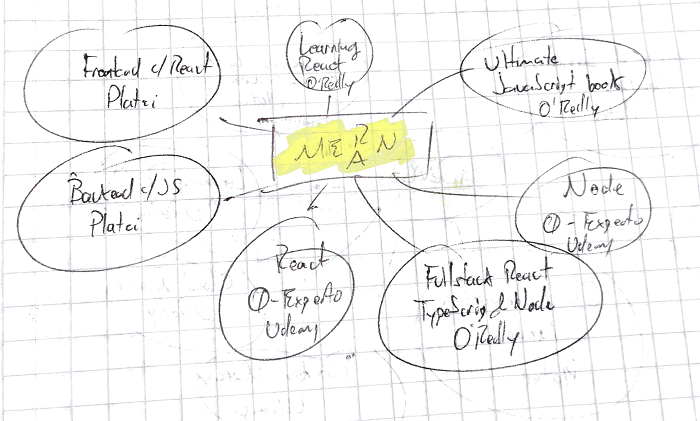 Learning
React
O'Reilly
Frontend c/React
Platzi
Ultimate
JavaScript book
O'Reilly
MERN
A
Backend c/JS
Platzi
Node
0-Experto
Udemy
React
0-Experto
Udemy
Fullstack React
TypeScript & Node
O'Reilly